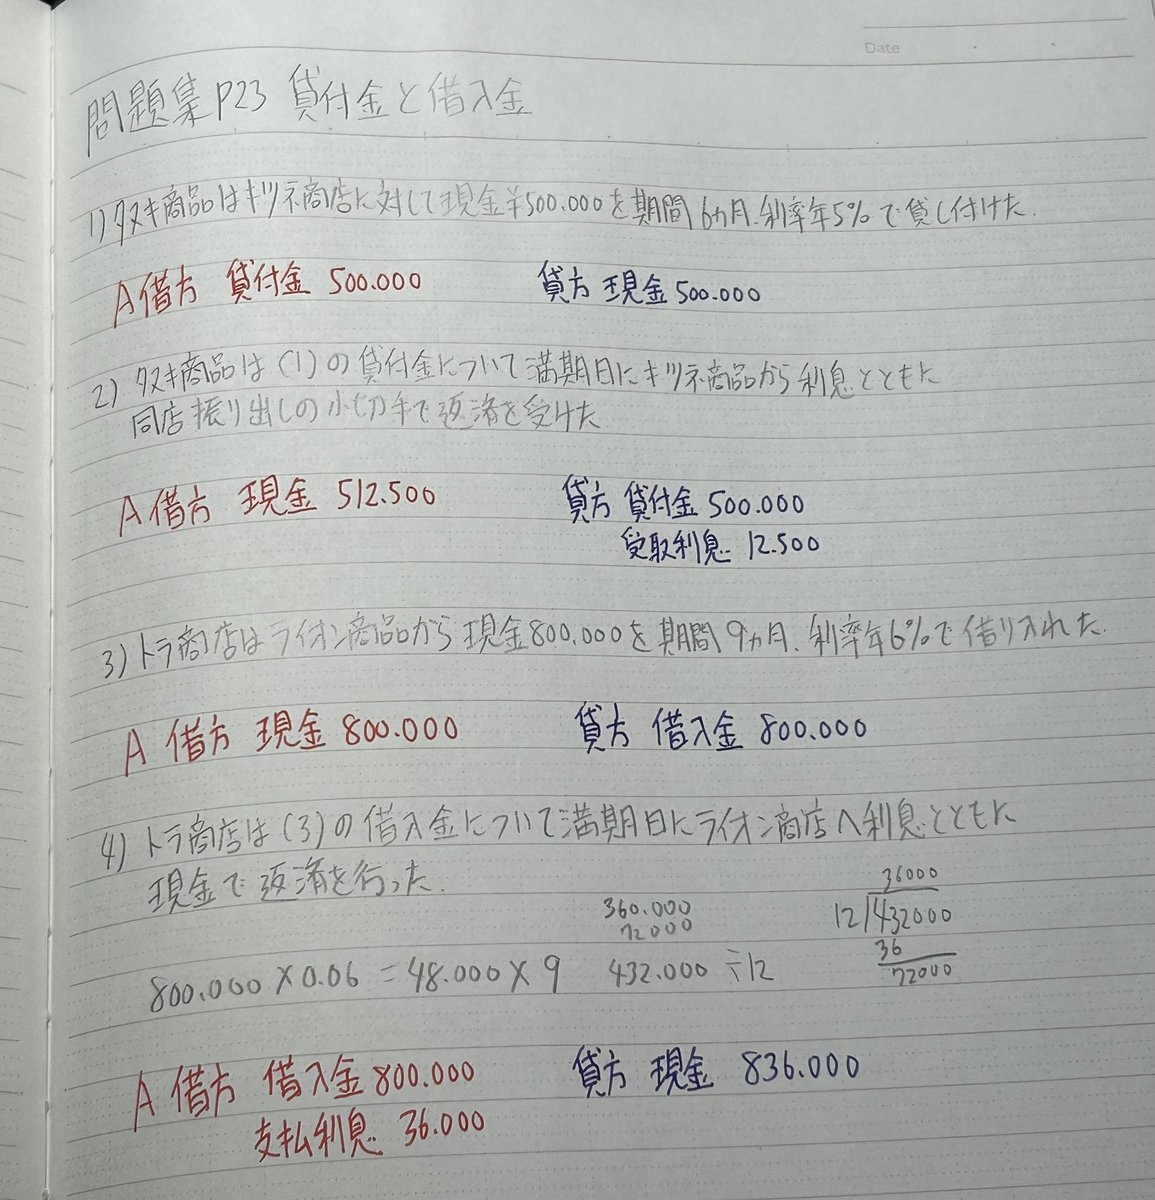 Date
問題集P23 貸付金と借入金
1) タヌキ商品はキツネ商店に対して現金¥500.000を期間6ヵ月.利率年5%で貸し付けた.
A 借方 貸付金 500.000 貸方 現金 500.000
2) タヌキ商品は(1)の貸付金について満期日にキツネ商品から利息とともに
同店振り出しの小切手で返済を受けた
A 借方 現金 512.500 貸方 貸付金 500.000
受取利息 12.500
3) トラ商店はライオン商品から現金800.000を期間9ヵ月.利率年6%で借り入れた.
A 借方 現金 800.000 貸方 借入金 800.000
4) トラ商店は(3)の借入金について満期日にライオン商店へ利息とともに
現金で返済を行った.
360.000
72000
800.000×0.06=48.000×9 432.000÷12
36000
12)432000
36
72000
A 借方 借入金 800.000 貸方 現金 836.000
支払利息 36.000